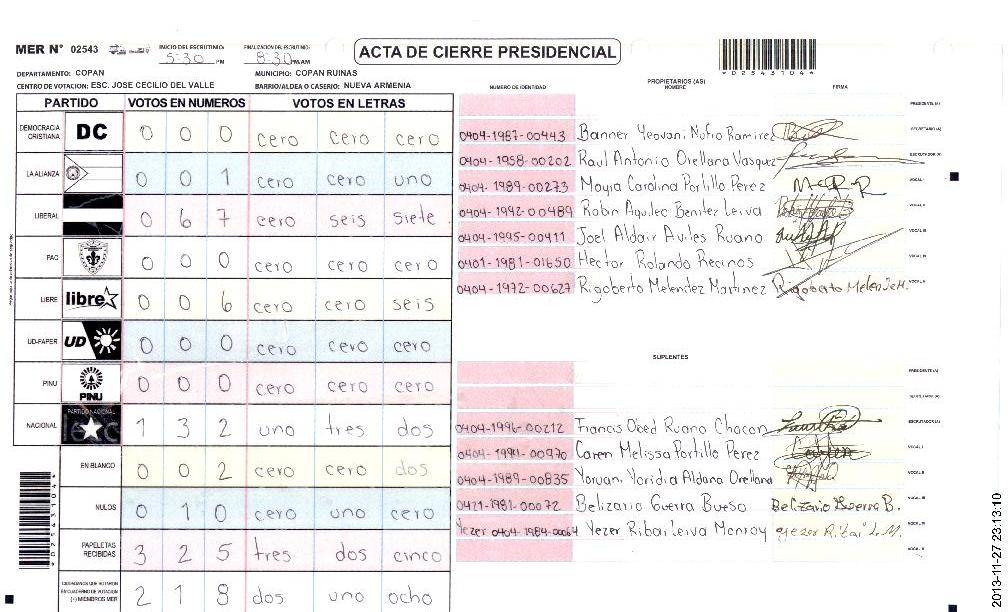 MER N° 02543
INICIO DEL ESCRUTINIO: 5:30 PM
FINALIZACION DEL ESCRUTINIO: 8:30 PM/AM
ACTA DE CIERRE PRESIDENCIAL
*02543104*
DEPARTAMENTO: COPAN
MUNICIPIO: COPAN RUINAS
CENTRO DE VOTACION: ESC. JOSE CECILIO DEL VALLE
BARRIO/ALDEA O CASERIO: NUEVA ARMENIA
PARTIDO VOTOS EN NUMEROS VOTOS EN LETRAS
DEMOCRACIA CRISTIANA DC 0 0 0 cero cero cero
LA ALIANZA 0 0 1 cero cero uno
LIBERAL 0 6 7 cero seis siete
PAC 0 0 0 cero cero cero
LIBRE libre 0 0 6 cero cero seis
UD-FAPER UD 0 0 0 cero cero cero
PINU PINU 0 0 0 cero cero cero
NACIONAL PARTIDO NACIONAL 1 3 2 uno tres dos
EN BLANCO 0 0 2 cero cero dos
NULOS 0 1 0 cero uno cero
PAPELETAS RECIBIDAS 3 2 5 tres dos cinco
CIUDADANOS QUE VOTARON EN CUADERNO DE VOTACION (+) MIEMBROS MER 2 1 8 dos uno ocho
PROPIETARIOS (AS)
NUMERO DE IDENTIDAD NOMBRE FIRMA
PRESIDENTE (A)
0404-1987-00443 Banner Yeovani Nufio Ramirez SECRETARIO (A)
0404-1958-00202 Raul Antonio Orellana Vasquez ESCRUTADOR (A)
0404-1989-00273 Mayra Carolina Portillo Perez VOCAL I
0404-1992-00489 Robin Aguilec Benitez Leiva VOCAL II
0404-1995-00411 Joel Aldair Aviles Ruano VOCAL III
0401-1981-01650 Hector Rolando Recinos VOCAL IV
0404-1972-00627 Rigoberto Melendez Martinez Rigoberto Melendez M. VOCAL V
SUPLENTES
PRESIDENTE (A)
SECRETARIO (A)
0404-1996-00212 Francis Obed Ruano Chacon ESCRUTADOR (A)
0404-1991-00970 Caren Melissa Portillo Perez VOCAL I
0404-1989-00835 Yorvani Yaridia Aldana Orellana VOCAL II
0421-1981-00072 Belizario Guerra Bueso Belizario Guerra B. VOCAL III
Yezer 0404-1984-0064 Yezer Ribai Leiva Monroy VOCAL IV
VOCAL V
2013-11-27 23:13:10